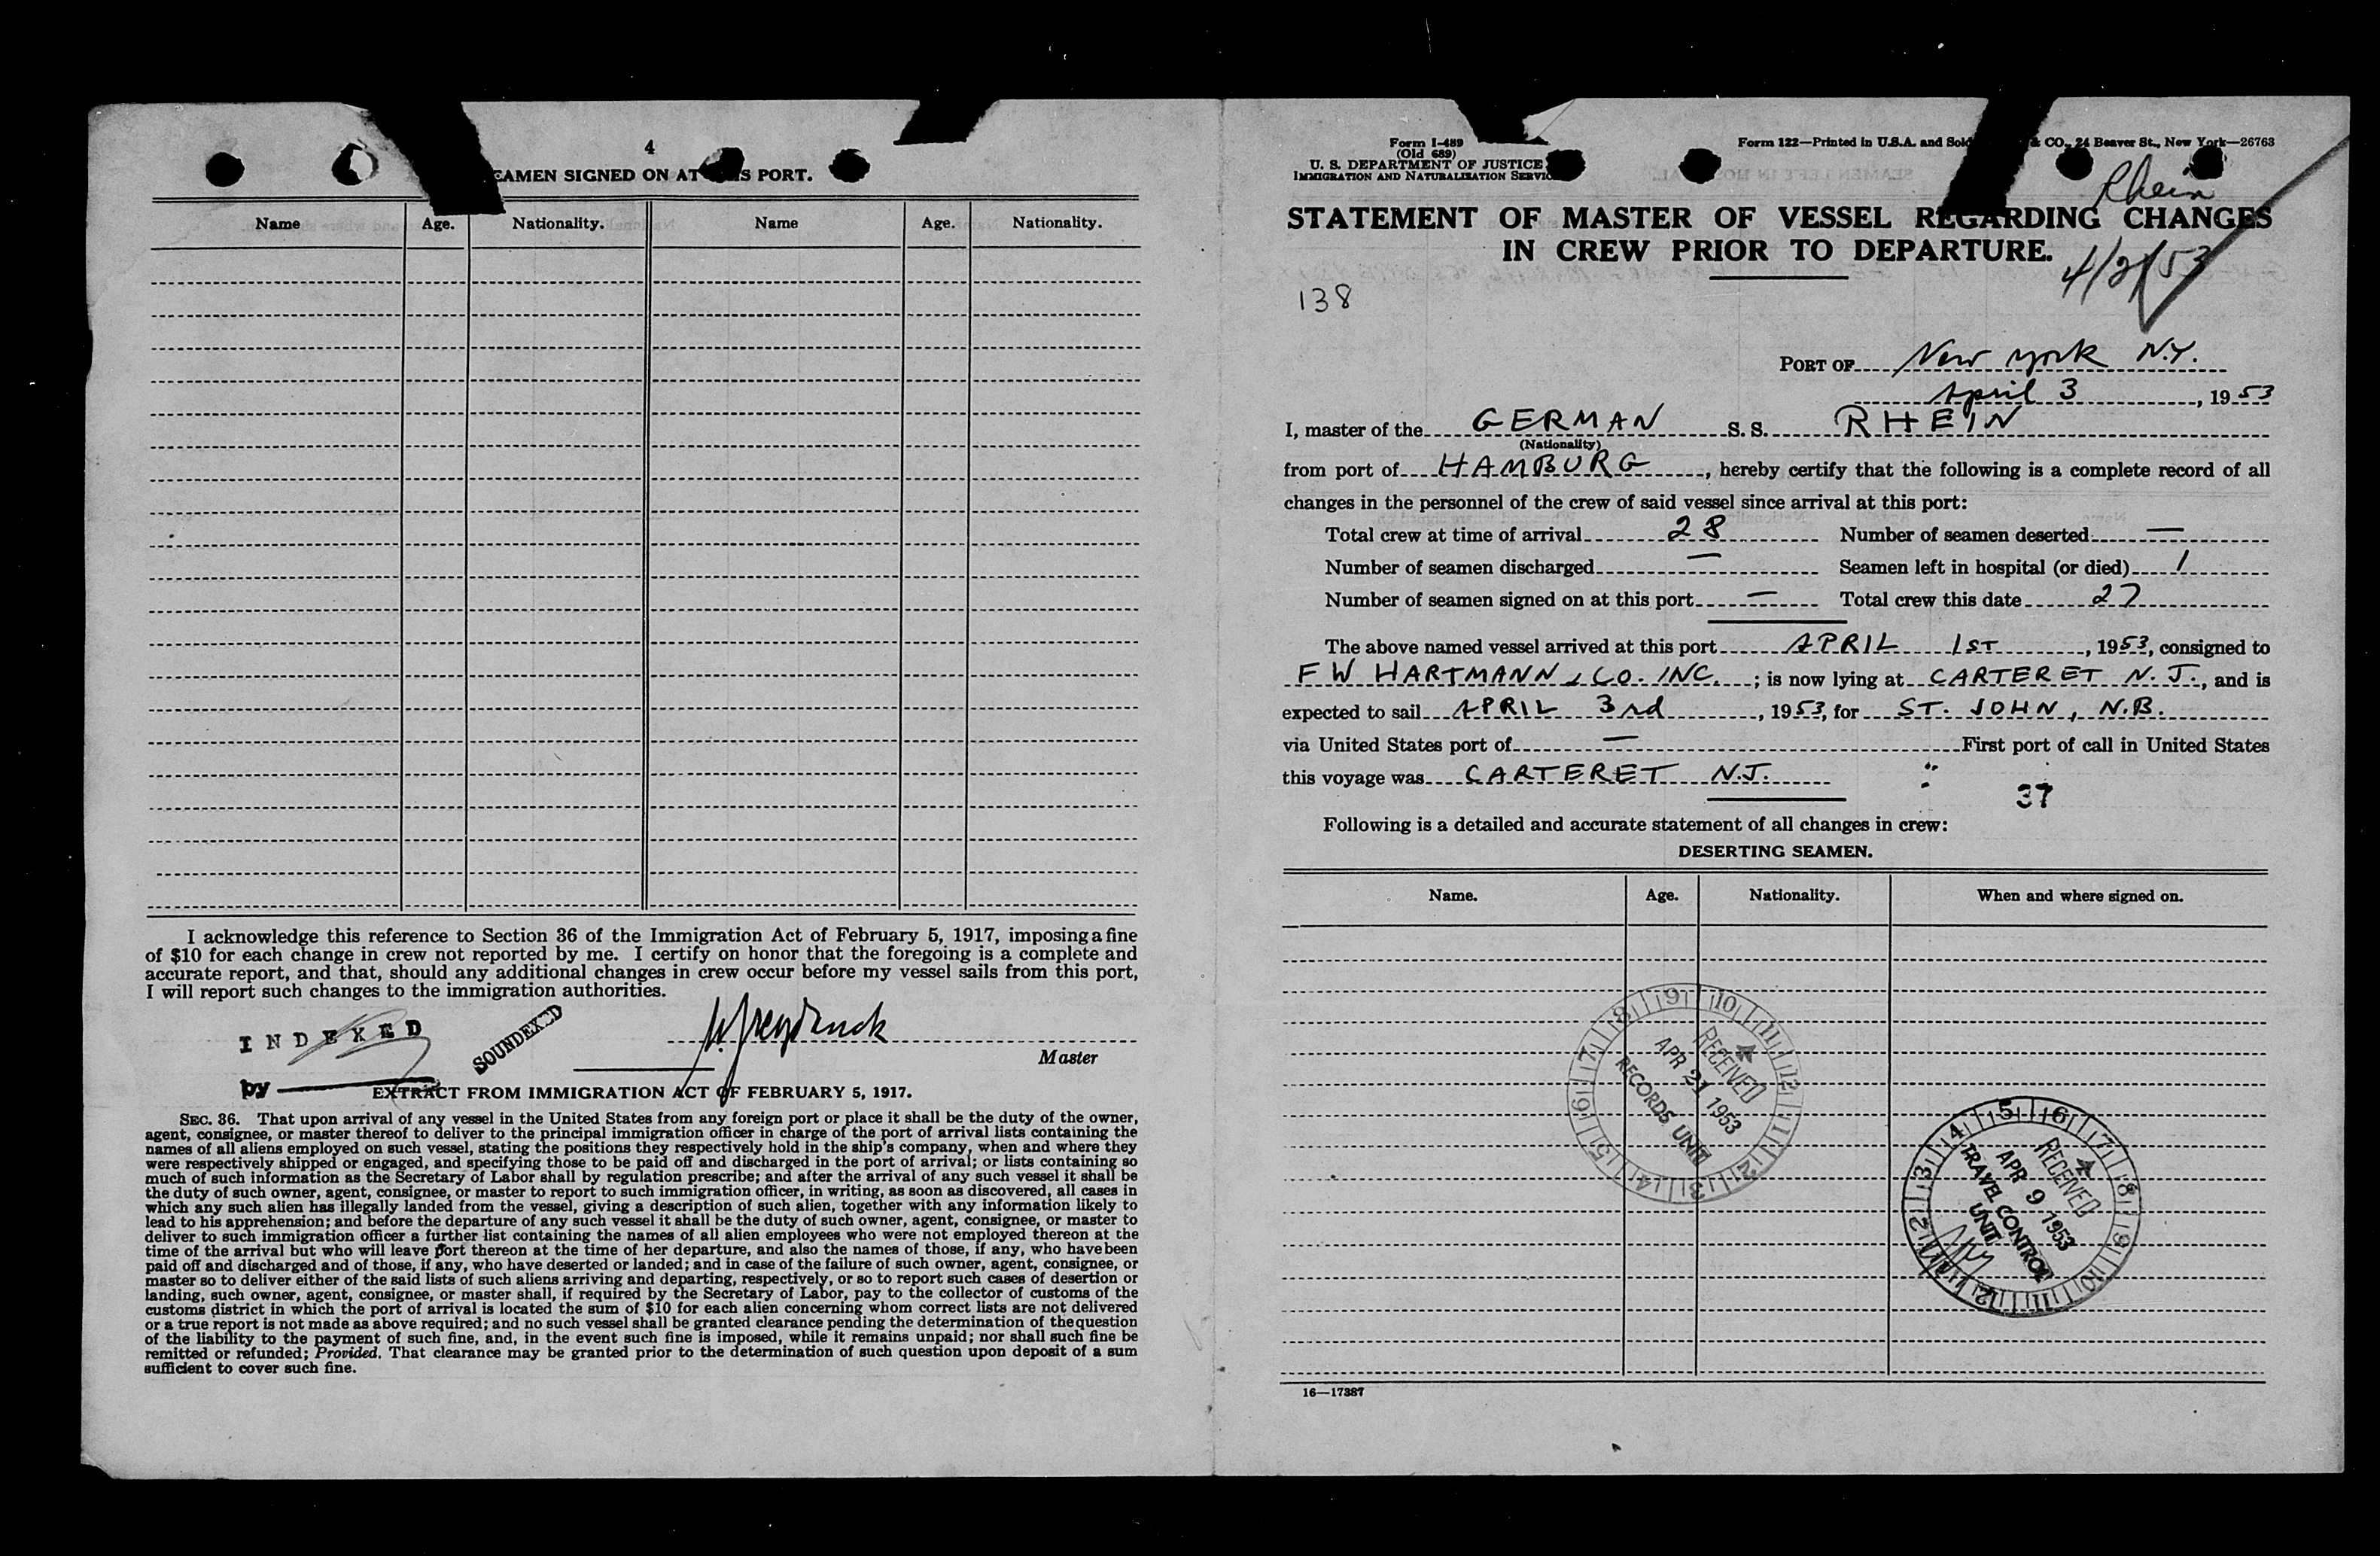 4
EAMEN SIGNED ON AT S PORT.
Name Age. Nationality. Name Age. Nationality.
I acknowledge this reference to Section 36 of the Immigration Act of February 5, 1917, imposing a fine
of $10 for each change in crew not reported by me. I certify on honor that the foregoing is a complete and
accurate report, and that, should any additional changes in crew occur before my vessel sails from this port,
I will report such changes to the immigration authorities.
INDEXED
by
SOUNDEXED
Master
EXTRACT FROM IMMIGRATION ACT OF FEBRUARY 5, 1917.
SEC. 36. That upon arrival of any vessel in the United States from any foreign port or place it shall be the duty of the owner,
agent, consignee, or master thereof to deliver to the principal immigration officer in charge of the port of arrival lists containing the
names of all aliens employed on such vessel, stating the positions they respectively hold in the ship's company, when and where they
were respectively shipped or engaged, and specifying those to be paid off and discharged in the port of arrival; or lists containing so
much of such information as the Secretary of Labor shall by regulation prescribe; and after the arrival of any such vessel it shall be
the duty of such owner, agent, consignee, or master to report to such immigration officer, in writing, as soon as discovered, all cases in
which any such alien has illegally landed from the vessel, giving a description of such alien, together with any information likely to
lead to his apprehension; and before the departure of any such vessel it shall be the duty of such owner, agent, consignee, or master to
deliver to such immigration officer a further list containing the names of all alien employees who were not employed thereon at the
time of the arrival but who will leave port thereon at the time of her departure, and also the names of those, if any, who have been
paid off and discharged and of those, if any, who have deserted or landed; and in case of the failure of such owner, agent, consignee, or
master so to deliver either of the said lists of such aliens arriving and departing, respectively, or so to report such cases of desertion or
landing, such owner, agent, consignee, or master shall, if required by the Secretary of Labor, pay to the collector of customs of the
customs district in which the port of arrival is located the sum of $10 for each alien concerning whom correct lists are not delivered
or a true report is not made as above required; and no such vessel shall be granted clearance pending the determination of the question
of the liability to the payment of such fine, and, in the event such fine is imposed, while it remains unpaid; nor shall such fine be
remitted or refunded; Provided, That clearance may be granted prior to the determination of such question upon deposit of a sum
sufficient to cover such fine.
Form I-489
(Old 689)
U. S. DEPARTMENT OF JUSTICE
IMMIGRATION AND NATURALIZATION SERVIC
Form 122—Printed in U.S.A. and Sold & CO., 24 Beaver St., New York—26763
Rhein
STATEMENT OF MASTER OF VESSEL REGARDING CHANGES
IN CREW PRIOR TO DEPARTURE.
4/2/53
138
PORT OF New York N.Y.
April 3, 1953
I, master of the GERMAN S. S. RHEIN
(Nationality)
from port of HAMBURG, hereby certify that the following is a complete record of all
changes in the personnel of the crew of said vessel since arrival at this port:
Total crew at time of arrival 28 Number of seamen deserted —
Number of seamen discharged — Seamen left in hospital (or died) 1
Number of seamen signed on at this port — Total crew this date 27
The above named vessel arrived at this port APRIL 1ST, 1953, consigned to
F W HARTMANN & CO. INC.; is now lying at CARTERET N.J., and is
expected to sail APRIL 3rd, 1953, for ST. JOHN, N.B.
via United States port of — First port of call in United States
this voyage was CARTERET N.J.
37
Following is a detailed and accurate statement of all changes in crew:
DESERTING SEAMEN.
Name. Age. Nationality. When and where signed on.
9 10 11 12 1 2 3 4 5 6 7 8
RECEIVED
APR 21 1953
RECORDS UNIT
5 6 7 8 9 10 11 12 1 2 3 4
RECEIVED
APR 9 1953
TRAVEL CONTROL
UNIT
16—17387